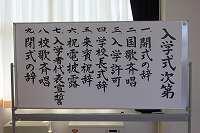 入学式次第
一 開式の辞
二 国歌斉唱
三 入学許可
四 学校長式辞
五 来賓祝辞
六 祝電披露
七 入学者代表宣誓
八 校歌斉唱
九 閉式の辞